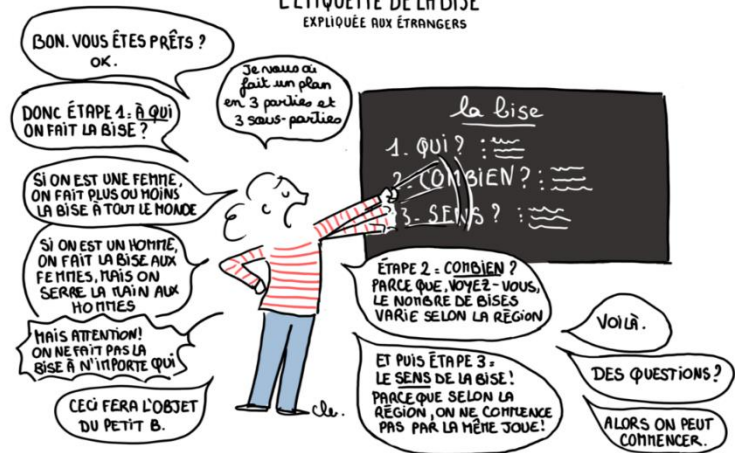 L'ÉTIQUETTE DE LA BISE
EXPLIQUÉE AUX ÉTRANGERS
BON. VOUS ÊTES PRÊTS ?
OK.
Je vous ai
fait un plan
en 3 parties et
3 sous-parties
DONC ÉTAPE 1 : À QUI
ON FAIT LA BISE ?
SI ON EST UNE FEMME,
ON FAIT PLUS OU MOINS
LA BISE À TOUT LE MONDE
SI ON EST UN HOMME,
ON FAIT LA BISE AUX
FEMMES, MAIS ON
SERRE LA MAIN AUX
HOMMES
MAIS ATTENTION!
ON NE FAIT PAS LA
BISE À N'IMPORTE QUI
CECI FERA L'OBJET
DU PETIT B.
la bise
1. QUI ? :
2. COMBIEN ? :
3. SENS ? :
ÉTAPE 2 : COMBIEN ?
PARCE QUE, VOYEZ-VOUS,
LE NOMBRE DE BISES
VARIE SELON LA RÉGION
ET PUIS ÉTAPE 3 :
LE SENS DE LA BISE !
PARCE QUE SELON LA
RÉGION, ON NE COMMENCE
PAS PAR LA MÊME JOUE!
VOILÀ.
DES QUESTIONS ?
ALORS ON PEUT
COMMENCER.
cle.